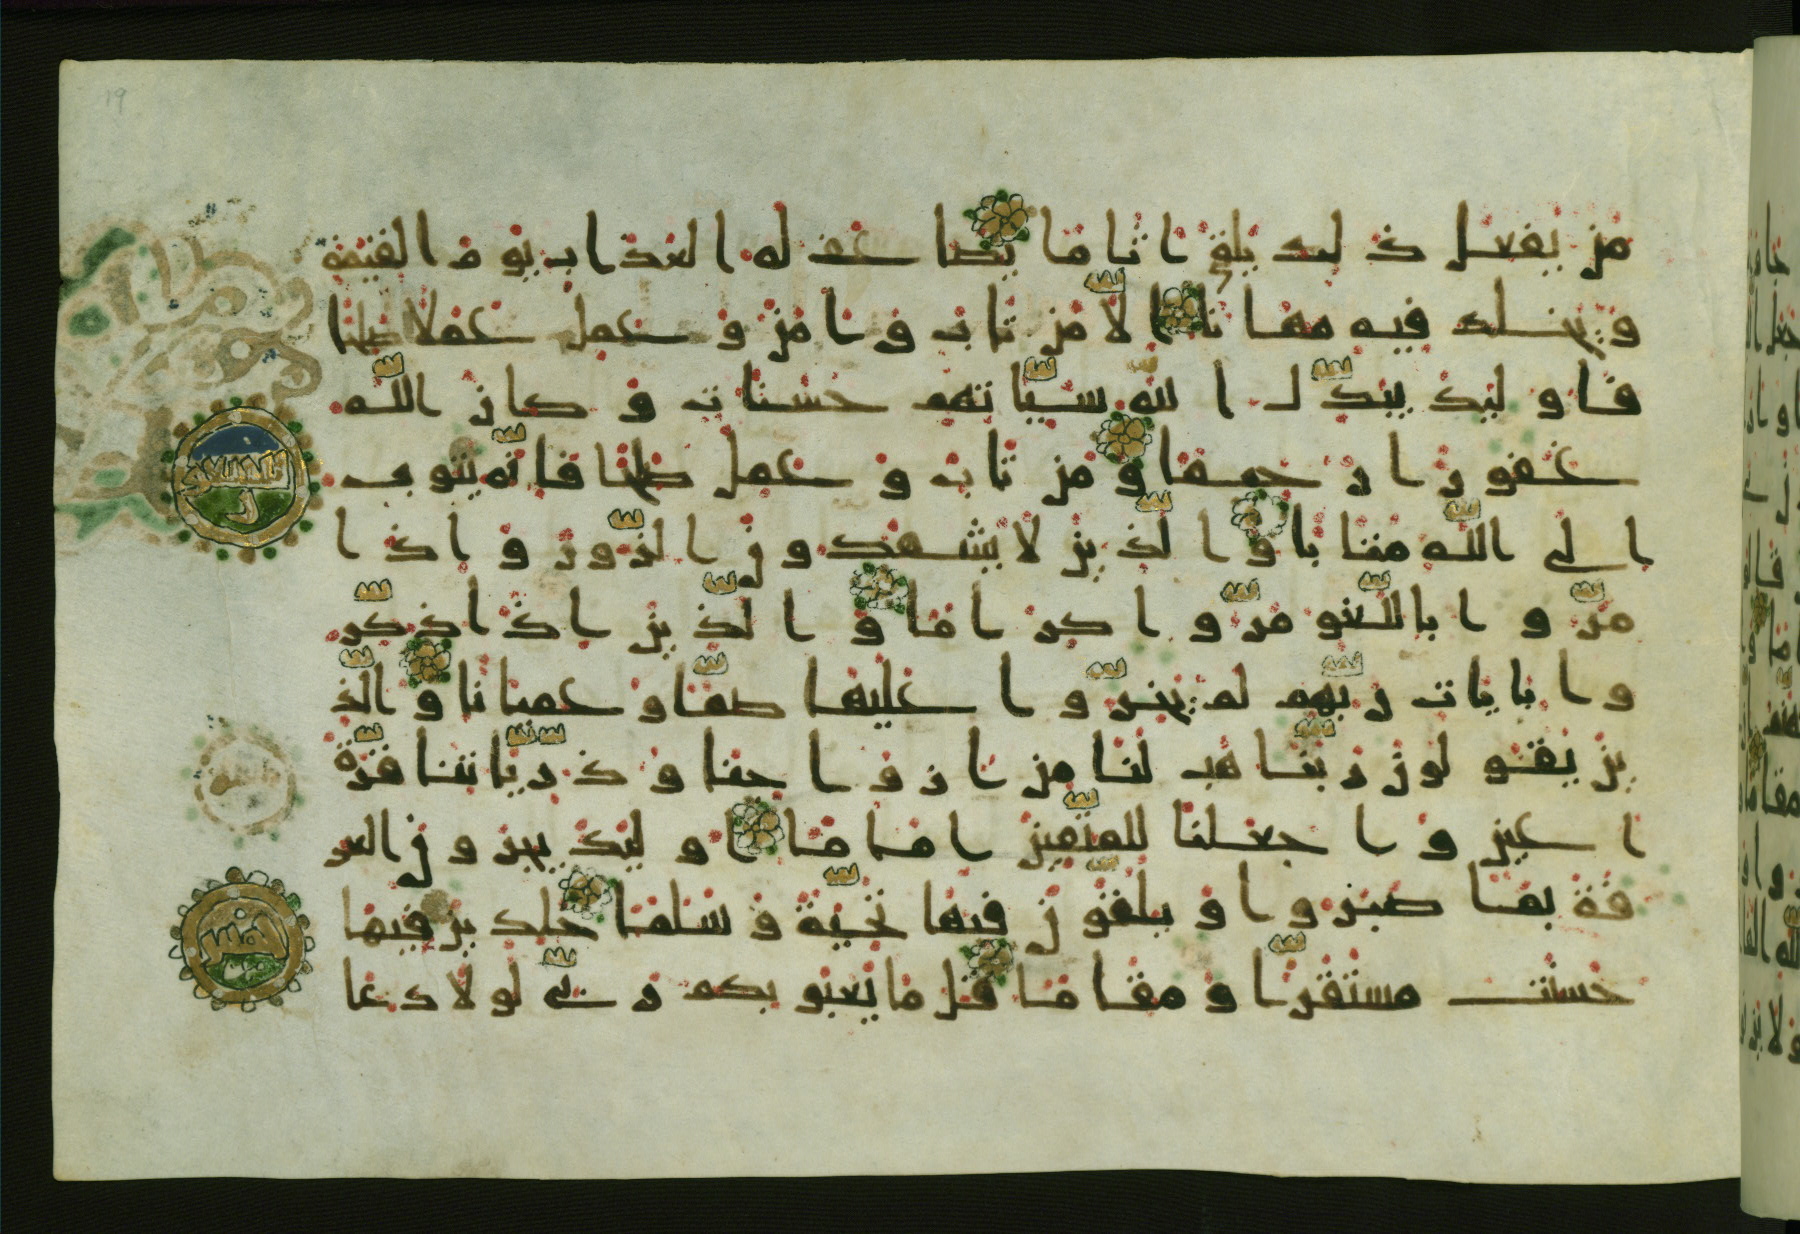 19
من يفعل ذ لك يلق ا ثا ما يضا عف له ا لعذ ا ب يو م ا لقيمة
و يخلد فيه مها نا ا لا من تا ب و ا من و عمل عملا صلحا
فا و لئك يبدّ ل ا للّه سيّا تهم حسنا ت و كا ن اللّه
غفو ر ا ر حيما و من تا ب و عمل صلحا فا نّه يتو ب
ا لى اللّه متا با و ا لّذ ين لا يشهد و ن ا لزّ و ر و ا ذ ا
مرّ و ا با للّغو مرّ و ا كر ا ما و ا لّذ ين ا ذ ا ذ كّر
و ا با يا ت ر بّهم لم يخرّ و ا عليها صمّا و عميا نا و الّذ
ين يقو لو ن ر بّنا هب لنا من ا ز و ا جنا و ذ رّ يّا تنا قرّة
ا عين و ا جعلنا للمتّقين ا ما ما ا و لئك يجز و ن الغر
فة بما صبر و ا و يلقّو ن فيها تحيّة و سلما خلد ين فيها
حسنت مستقرّ ا و مقا ما قل ما يعبو بكم ر بّي لو لا د عا